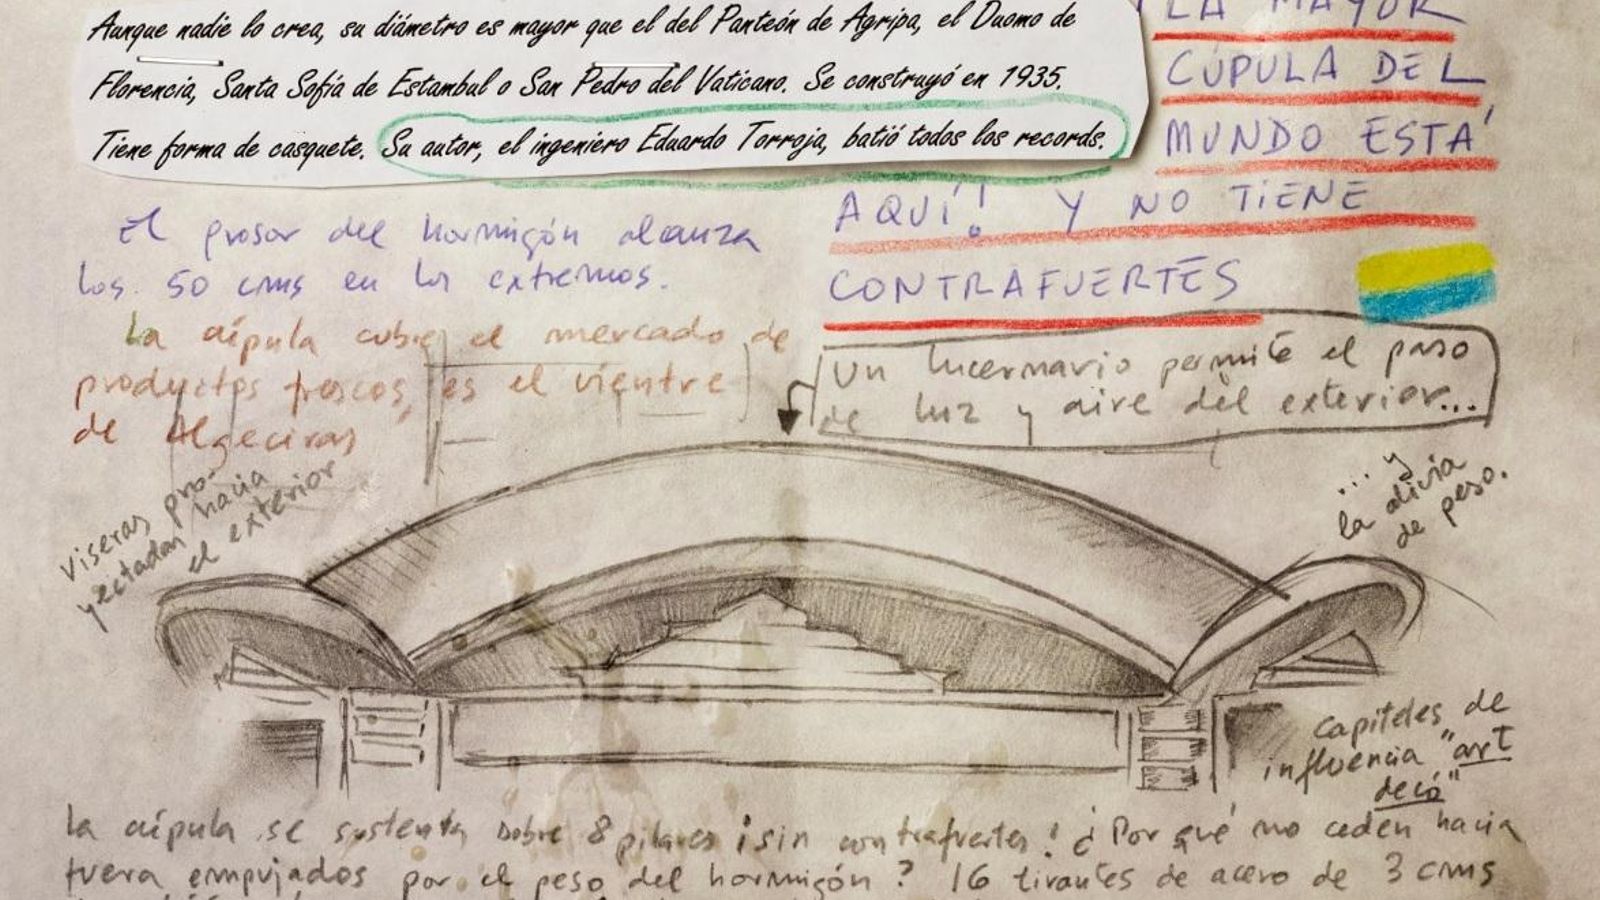 Aunque nadie lo crea, su diámetro es mayor que el del Panteón de Agripa, el Duomo de
Florencia, Santa Sofía de Estambul o San Pedro del Vaticano. Se construyó en 1935.
Tiene forma de casquete. Su autor, el ingeniero Eduardo Torroja, batió todos los records.
¡LA MAYOR
CÚPULA DEL
MUNDO ESTÁ
AQUÍ! Y NO TIENE
CONTRAFUERTES
El grosor del hormigón alcanza
los 50 cms en los extremos.
La cúpula cubre el mercado de
productos frescos, es el vientre
de Algeciras
Un lucernario permite el paso
de luz y aire del exterior...
... y
la alivia
de peso.
viseras pro-
yectadas hacia
el exterior
Capiteles de
influencia "art
decó"
La cúpula se sustenta sobre 8 pilares ¡sin contrafuertes! ¿Por qué no ceden hacia
fuera empujados por el peso del hormigón? 16 tirantes de acero de 3 cms